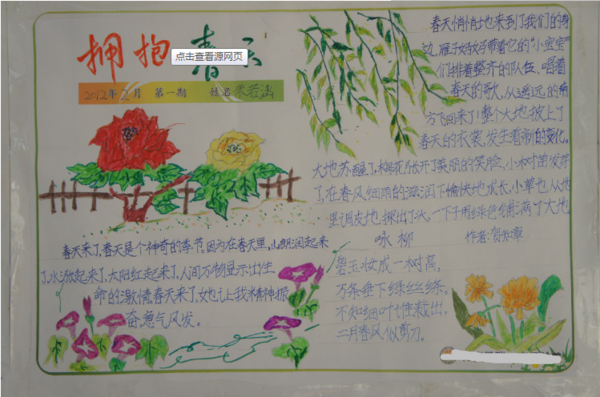 拥抱春天
点击查看源网页
2012年2月 第一期 姓名
春天悄悄地来到了我们的身
边,雁子妈妈带着它的“小宝宝”
们排着整齐的队伍、唱着
春天的歌,从遥远的南
方飞回来了!整个大地披上了
春天的衣裳,发生着新的变化。
大地苏醒了,桃花绽开了美丽的笑脸,小树苗发芽
了,在春风细雨的滋润下愉快地成长,小草也从地
里调皮地探出了头,一下子用绿色铺满了大地
春天来了,春天是个神奇的季节,因为在春天里,山朗润起来
了,水涨起来了,太阳红起来了,人间万物显示出生
命的激情,春天来了,她让我精神振
奋,意气风发。
咏柳 作者:贺知章
碧玉妆成一树高,
万条垂下绿丝绦。
不知细叶谁裁出,
二月春风似剪刀。